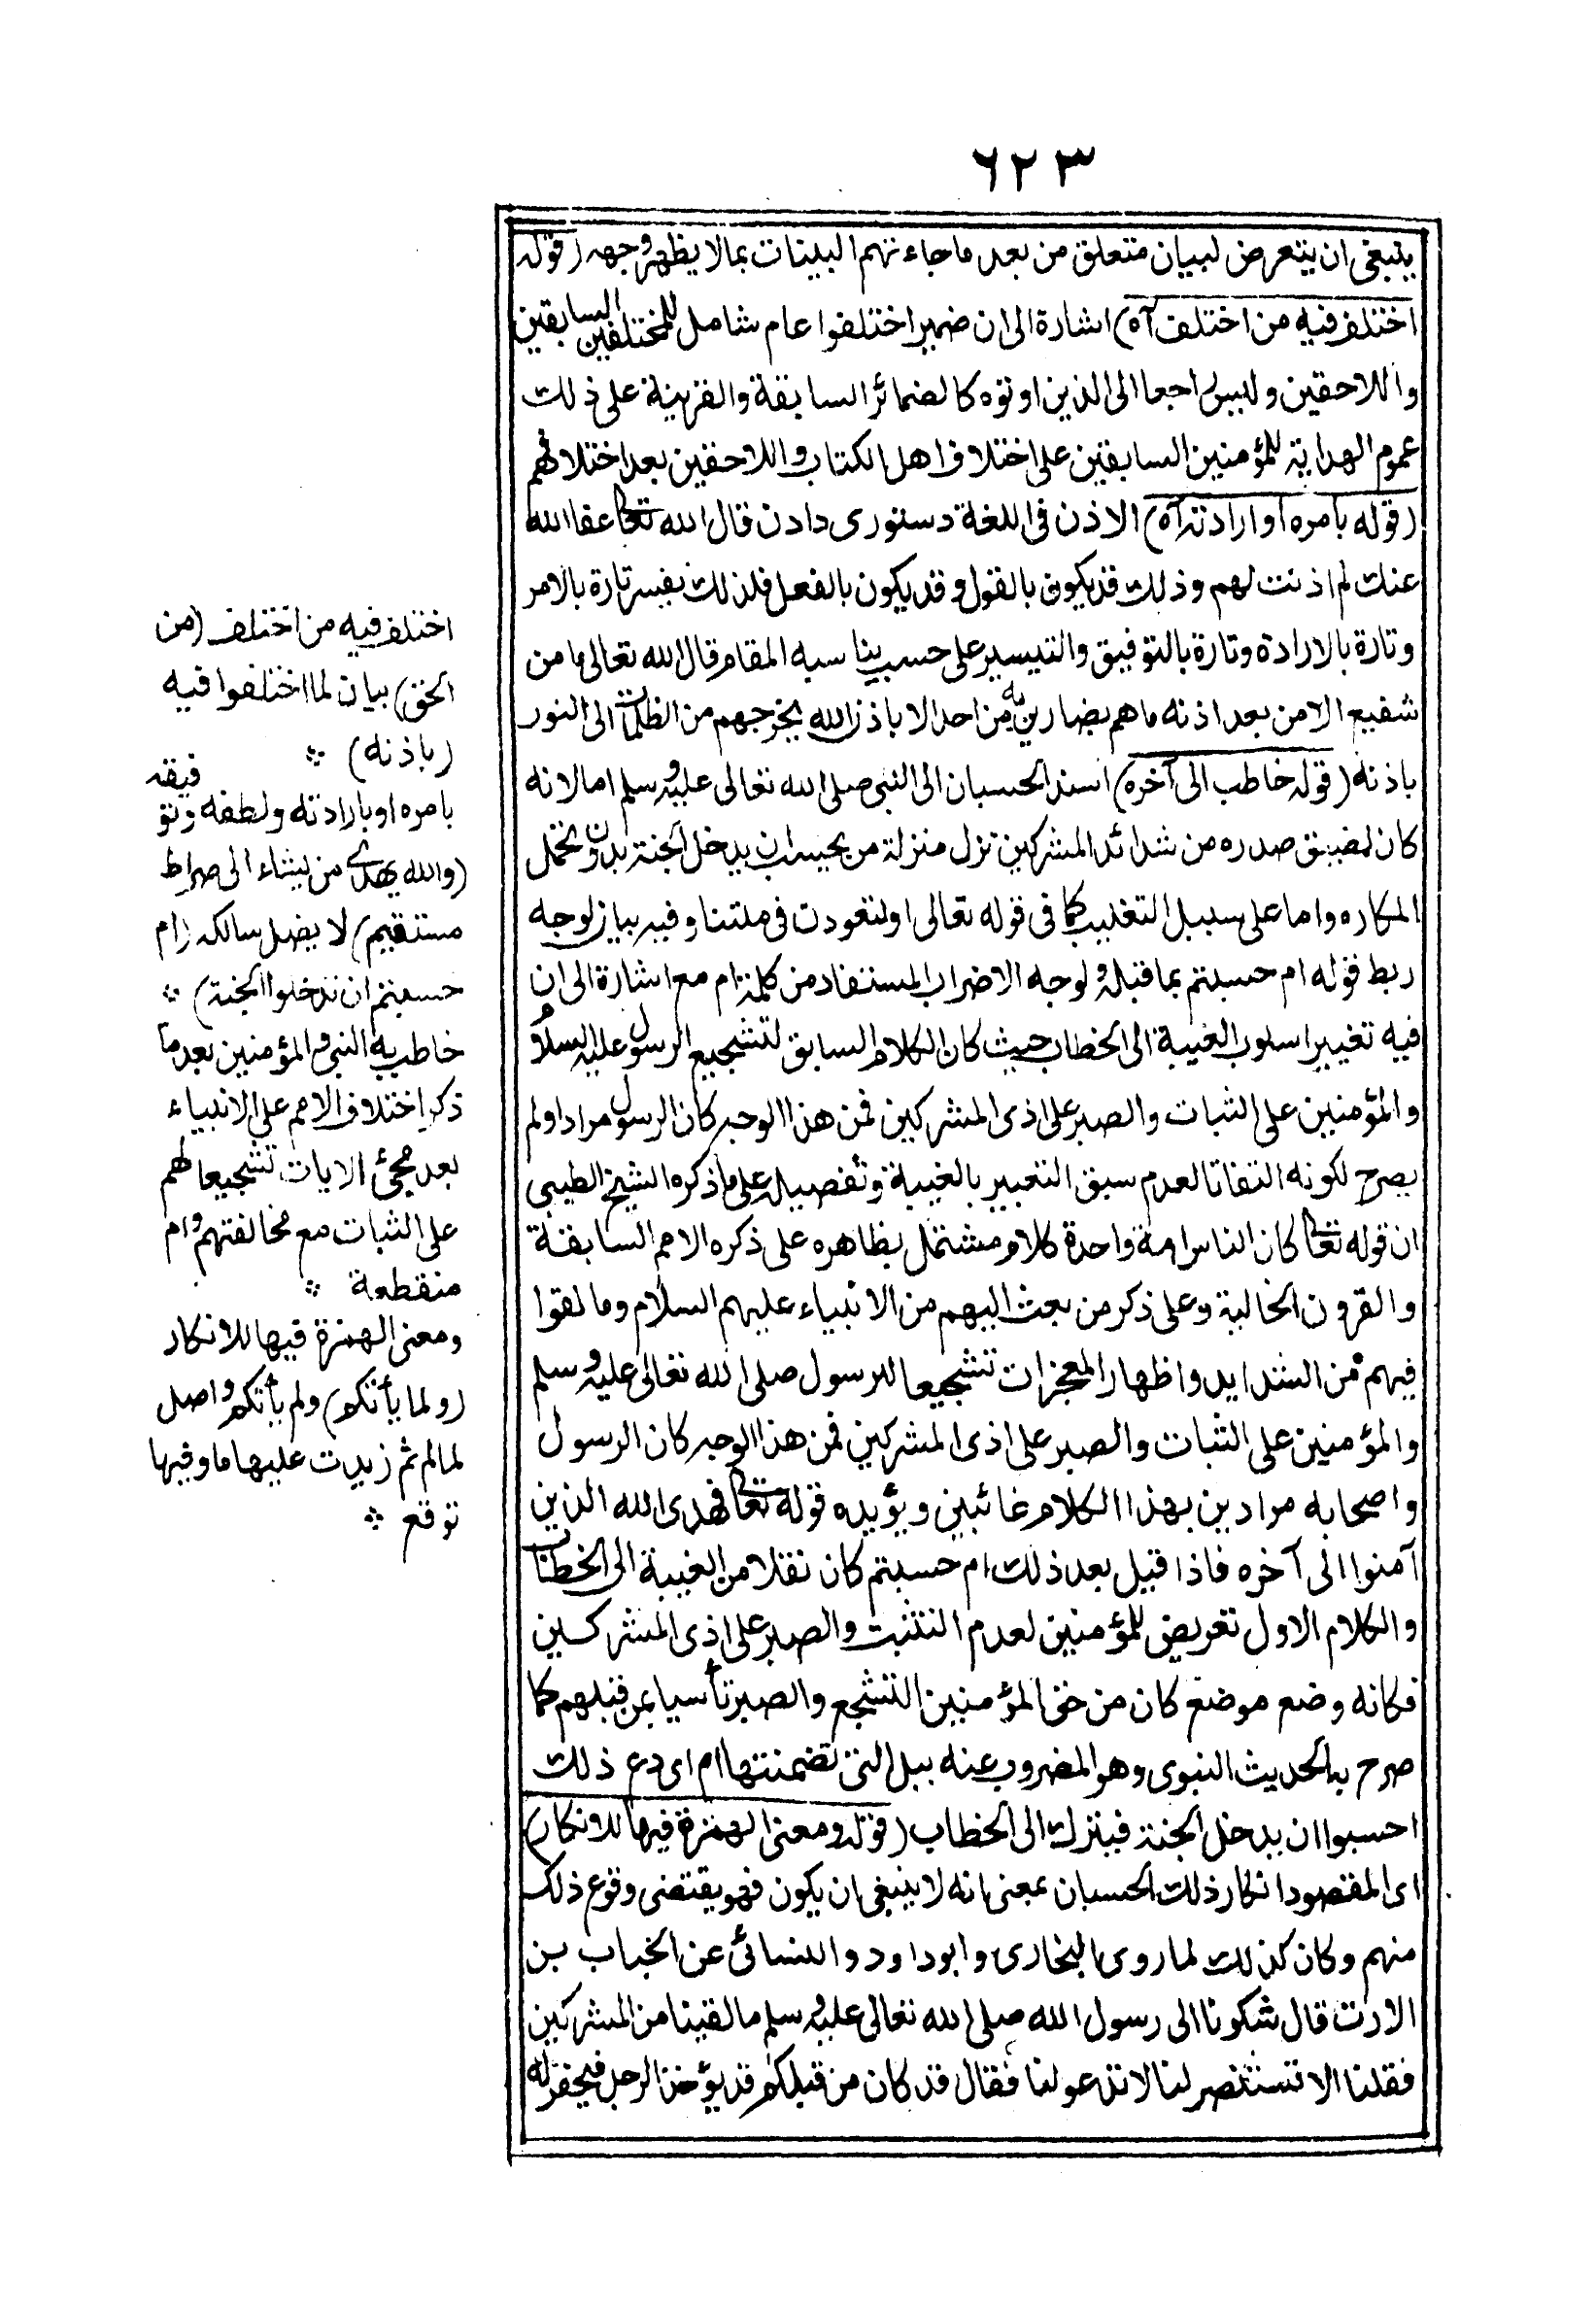 ٦٢٣
ينبغى ان يتعرض لبيان متعلق من بعد ما جاءتهم البينات بما لا يظهر وجهه (قوله
اختلف فيه من اختلف آه) اشارة الى ان ضمير اختلفوا عام شامل للمختلفين السابقين
واللاحقين وليس راجعا الى الذين اوتوه كالضمائر السابقة والقرينة على ذلك
عموم الهداية للمؤمنين السابقين على اختلاف اهل الكتاب واللاحقين بعد اختلافهم
(قوله بامره او ارادته آه) الاذن فى اللغة دستورى دادن قال الله تعا عفا الله
عنك لم اذنت لهم وذلك قد يكون بالقول وقد يكون بالفعل فلذلك يفسر تارة بالامر
وتارة بالارادة وتارة بالتوفيق والتيسير على حسب يناسبه المقام قال الله تعالى ما من
شفيع الا من بعد اذنه ما هم بضارين به من احد الا باذن الله يخرجهم من الظلمات الى النور
باذنه (قوله خاطب الى آخره) اسند الحسبان الى النبى صلى الله تعالى عليه وسلم اما لانه
كان لضيق صدره من شدائد المشركين نزل منزلة من يحسب ان يدخل الجنة بدون تحمل
المكاره واما على سبيل التغليب كما فى قوله تعالى او لتعودن فى ملتنا وفيه بيان لوجه
ربط قوله ام حسبتم بما قبله ولوجه الاضراب المستفاد من كلمة ام مع اشارة الى ان
فيه تغيير اسلوب الغيبة الى الخطاب حيث كان الكلام السابق لتشجيع الرسول عليه السلام
والمؤمنين على الثبات والصبر على اذى المشركين فمن هذا الوجه كان الرسول مرادا ولم
يصرح لكونه التفاتا لعدم سبق التعبير بالغيبة وتفصيله على ما ذكره الشيخ الطيبى
ان قوله تعا كان الناس امة واحدة كلام مشتمل بظاهره على ذكره الامم السابقة
والقرون الخالية وعلى ذكر من بعث اليهم من الانبياء عليهم السلام وما لقوا
فيهم من الشدايد واظهار المعجزات تشجيعا للرسول صلى الله تعالى عليه وسلم
والمؤمنين على الثبات والصبر على اذى المشركين فمن هذا الوجه كان الرسول
واصحابه مرادين بهذا الكلام غائبين ويؤيده قوله تعا فهدى الله الذين
آمنوا الى آخره فاذا قيل بعد ذلك ام حسبتم كان نقلا من الغيبة الى الخطاب
والكلام الاول تعريض للمؤمنين لعدم التثبت والصبر على اذى المشركين
فكانه وضع موضع كان من حق المؤمنين التشجع والصبر تأسيا بمن قبلهم كما
صرح به الحديث النبوى وهو المضروب عنه ببل التى تضمنتها ام اى دع ذلك
احسبوا ان يدخل الجنة فيترك الى الخطاب (قوله ومعنى الهمزة فيها للانكار)
اى المقصود انكار ذلك الحسبان بمعنى انه لا ينبغى ان يكون فهو يقتضى وقوع ذلك
منهم وكان كذلك لما روى البخارى وابو داود والنسائى عن الخباب بن
الارت قال شكونا الى رسول الله صلى الله تعالى عليه وسلم ما لقينا من المشركين
فقلنا الا تستنصر لنا الا تدعو لنا فقال قد كان من قبلكم قد يؤخذ الرجل فيحفر له
اختلف فيه من اختلف (من
الحق) بيان لما اختلفوا فيه
(باذنه)
بامره او بارادته ولطفه وتوفيقه
(والله يهدى من يشاء الى صراط
مستقيم) لا يضل سالكه (ام
حسبتم ان تدخلوا الجنة)
خاطب به النبى والمؤمنين بعد ما
ذكر اختلاف الامم على الانبياء
بعد مجئ الايات تشجيعا لهم
على الثبات مع مخالفتهم وام
منقطعة
ومعنى الهمزة فيها للانكار
(ولما يأتكم) ولم يأتكم واصل
لما لم ثم زيدت عليها ما وفيها
توقع